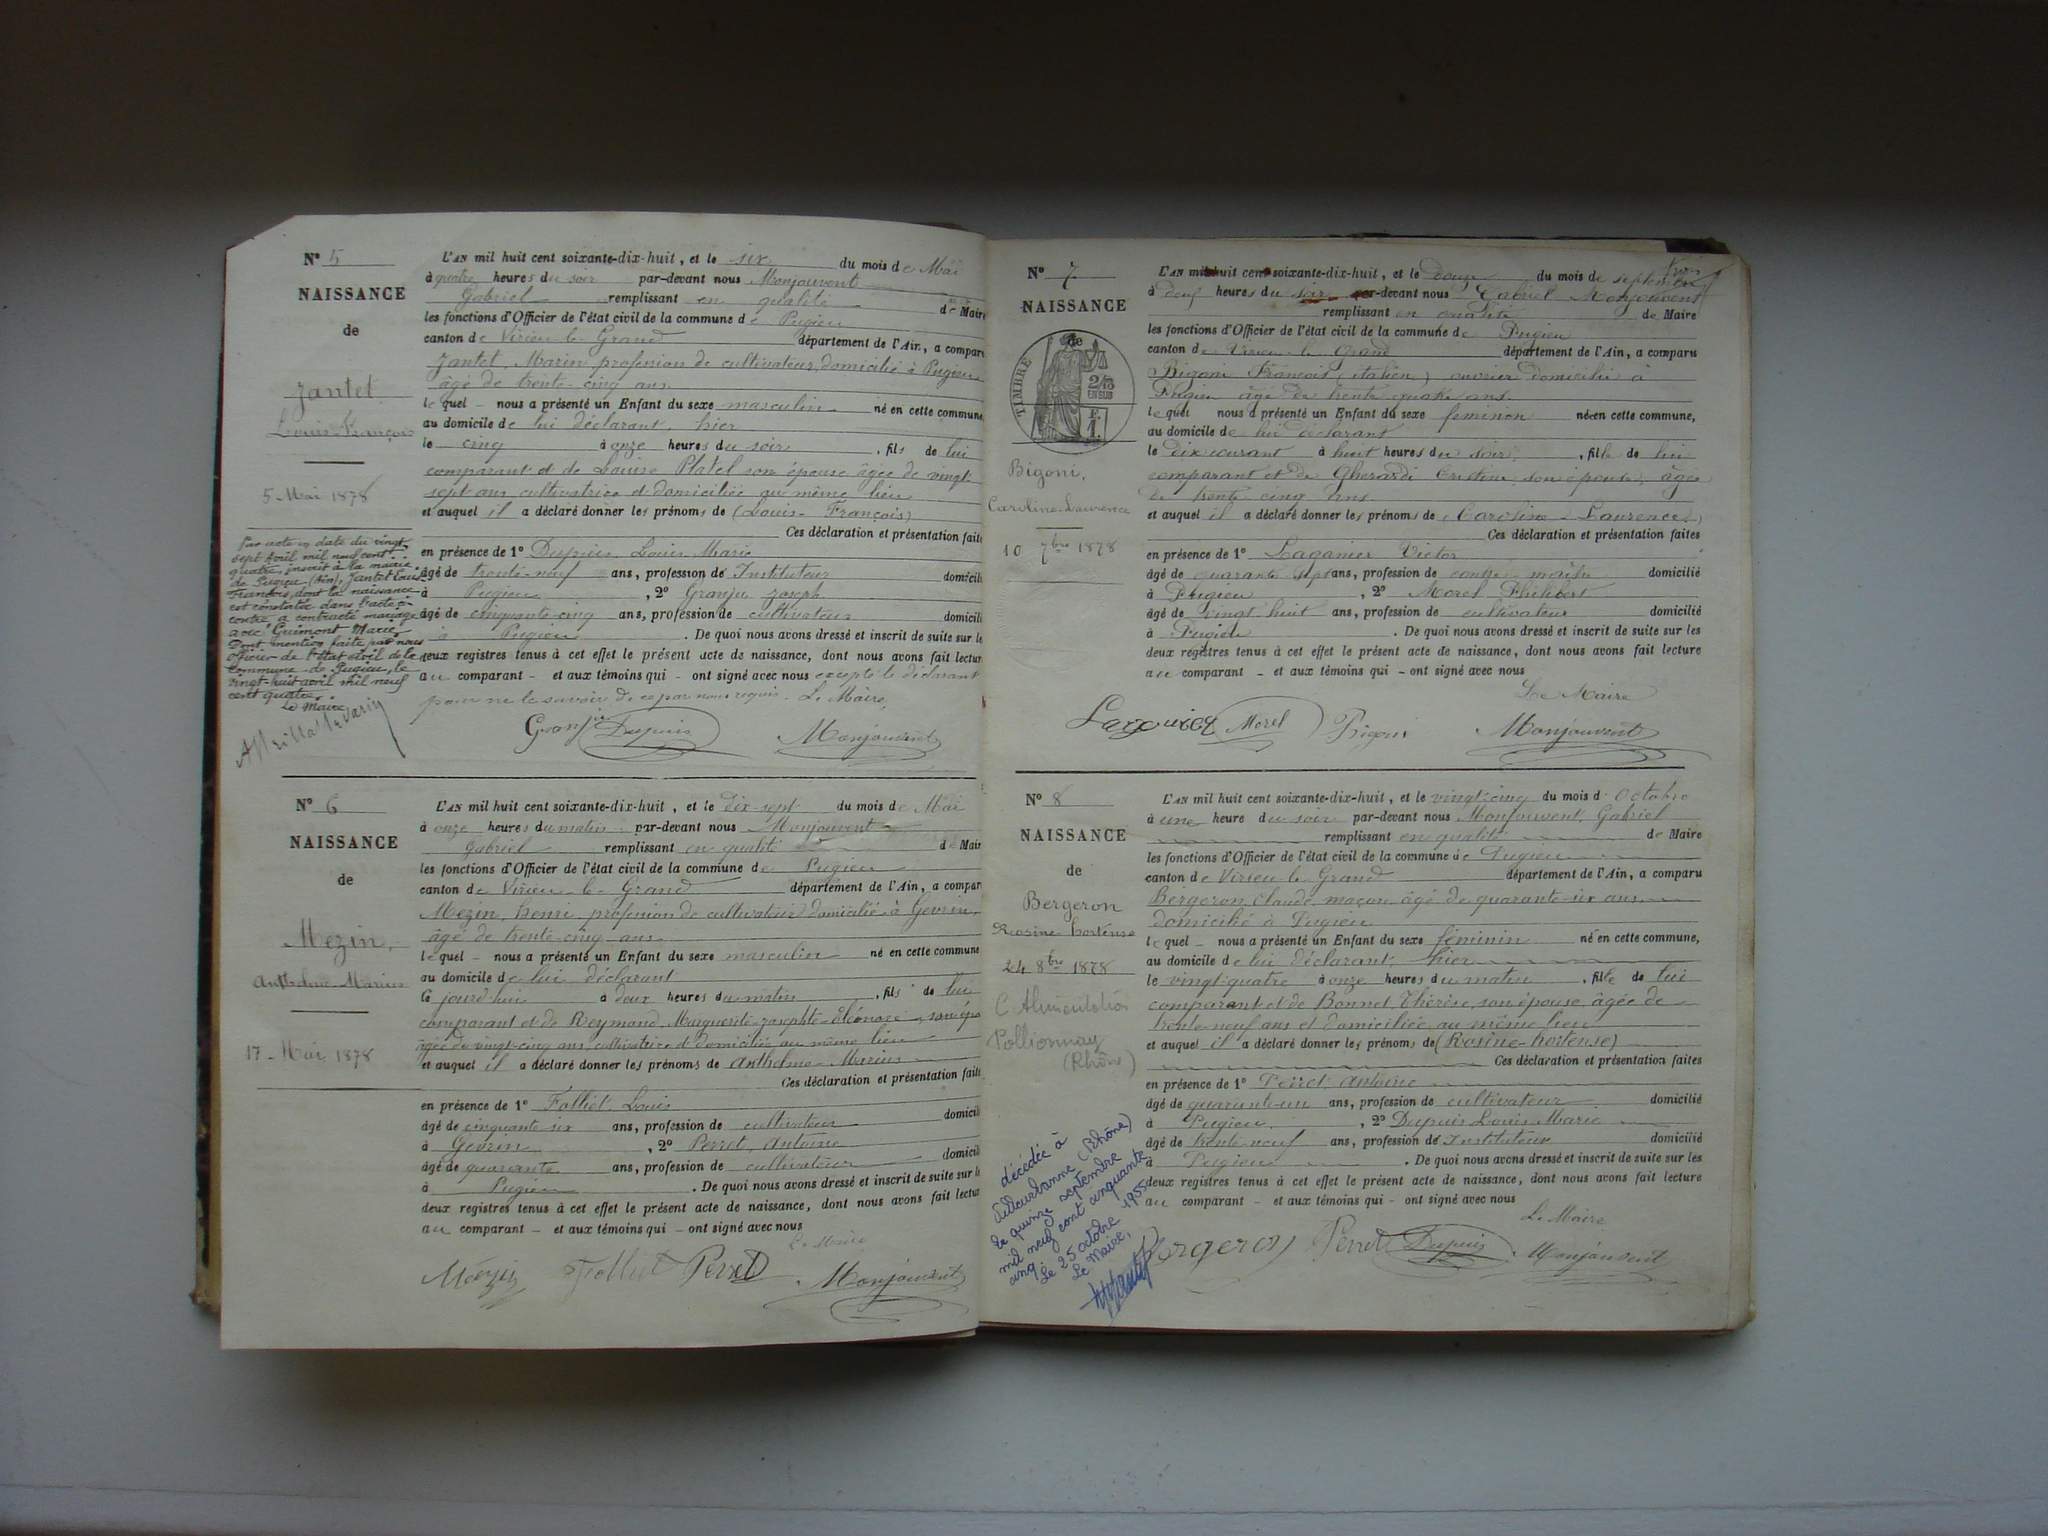 N° 5
NAISSANCE
de
Jantet
Louis-François
5 Mai 1878
Par acte en date du vingt
sept avril mil neuf cent
quatre, inscrit à la mairie
de Pugieu (Ain), Jantet Louis
François, dont la naissance
est constatée dans l'acte ci-
contre a contracté mariage
avec Guimont Marie
Dont mention faite par nous
officier de l'état civil de la
commune de Pugieu, le
vingt-huit avril mil neuf
cent quatre.
Le Maire
L'AN mil huit cent soixante-dix-huit, et le six du mois de Mai
à quatre heures du soir par-devant nous Monjouvent
Gabriel remplissant en qualité de Maire
les fonctions d'Officier de l'état civil de la commune de Pugieu
canton de Virieu-le-Grand département de l'Ain, a comparu
Jantet, Marin profession de cultivateur domicilié à Pugieu
âgé de trente-cinq ans
lequel - nous a présenté un Enfant du sexe masculin né en cette commune,
au domicile de lui déclarant, hier
le cinq à onze heures du soir, fils de lui
comparant et de Louise Platel son épouse âgée de vingt
sept ans cultivatrice et domiciliée au même lieu
et auquel il a déclaré donner les prénoms de (Louis-François)
Ces déclaration et présentation faites
en présence de 1° Dupuis, Louis Marie
âgé de trente-neuf ans, profession de Instituteur domicili
à Pugieu, 2° Granju Joseph
âgé de cinquante-cinq ans, profession de cultivateur domicili
à Pugieu. De quoi nous avons dressé et inscrit de suite sur le
deux registres tenus à cet effet le présent acte de naissance, dont nous avons fait lectur
au comparant - et aux témoins qui - ont signé avec nous excepté le déclarant
pour ne le savoir de ce par nous requis. Le Maire,
Granju Dupuis Monjouvent
N° 6
NAISSANCE
de
Mezin,
Anthelme-Marius
17 - Mai 1878
L'AN mil huit cent soixante-dix-huit, et le dix-sept du mois de Mai
à onze heures du matin par-devant nous Monjouvent
Gabriel remplissant en qualité de Mair
les fonctions d'Officier de l'état civil de la commune de Pugieu
canton de Virieu-le-Grand département de l'Ain, a compar
Mezin, henri profession de cultivateur domicilié à Gevrin,
âgé de trente-cinq ans
lequel - nous a présenté un Enfant du sexe masculin né en cette commune
au domicile de lui déclarant
Ce jourd'hui à deux heures du matin, fils de lui
comparant et de Reymond Marguerite-josephte-Eléonore, son épo
âgée de vingt-cinq ans, cultivatrice et domiciliée au même lieu
et auquel il a déclaré donner les prénoms de Anthelme-Marius
Ces déclaration et présentation faite
en présence de 1° Folliet Louis
âgé de cinquante six ans, profession de cultivateur domicili
à Gevrin, 2° Perret, Antoine
âgé de quarante ans, profession de cultivateur domicili
à Pugieu. De quoi nous avons dressé et inscrit de suite sur le
deux registres tenus à cet effet le présent acte de naissance, dont nous avons fait lectur
au comparant - et aux témoins qui - ont signé avec nous
Le Maire
Mezin Folliet Perret Monjouvent
N° 7
NAISSANCE
de
TIMBRE
2/10
EN SUS
F.
1.
Bigoni,
Caroline-Laurence
10 7bre 1878
trois
L'AN mil huit cent soixante-dix-huit, et le douze du mois de septembre
à deux heures du soir par-devant nous Gabriel Monjouvent
remplissant en qualité de Maire
les fonctions d'Officier de l'état civil de la commune de Pugieu
canton de Virieu le Grand département de l'Ain, a comparu
Bigoni François (italien) ouvrier domicilié à
Pugieu âgé de trente quatre ans
lequel nous a présenté un Enfant du sexe féminin né en cette commune,
au domicile de lui déclarant
le dix courant à huit heures du soir, fille de lui
comparant et de Gherardi Cristine son épouse, âgée
de trente cinq ans
et auquel il a déclaré donner les prénoms de (Caroline-Laurence)
Ces déclaration et présentation faites
en présence de 1° Laganier Victor
âgé de quarante sept ans, profession de contre-maître domicilié
à Pugieu, 2° Morel Philibert
âgé de vingt huit ans, profession de cultivateur domicilié
à Pugieu. De quoi nous avons dressé et inscrit de suite sur les
deux registres tenus à cet effet le présent acte de naissance, dont nous avons fait lecture
au comparant - et aux témoins qui - ont signé avec nous
Le Maire
Laganier Morel Bigoni Monjouvent
N° 8
NAISSANCE
de
Bergeron
Rosine hortense
24 8bre 1878
C. Alimentation
Pollionnay
(Rhône)
décédée à
Villeurbanne (Rhône)
le quinze septembre
mil neuf cent cinquante
cinq.
Le 25 octobre 1955
Le Maire,
L'AN mil huit cent soixante-dix-huit, et le vingt-cinq du mois d'Octobre
à une heure du soir par-devant nous Monjouvent, Gabriel
remplissant en qualité de Maire
les fonctions d'Officier de l'état civil de la commune de Pugieu
canton de Virieu le Grand département de l'Ain, a comparu
Bergeron Claude, maçon âgé de quarante-six ans
domicilié à Pugieu
lequel - nous a présenté un Enfant du sexe féminin né en cette commune,
au domicile de lui déclarant, hier
le vingt-quatre à onze heures du matin, fille de lui
comparant et de Bonnet Thérèse, son épouse, âgée de
trente-neuf ans et domiciliée au même lieu
et auquel il a déclaré donner les prénoms de (Rosine-hortense)
Ces déclaration et présentation faites
en présence de 1° Perret, Antoine
âgé de quarante-un ans, profession de cultivateur domicilié
à Pugieu, 2° Dupuis Louis Marie
âgé de trente neuf ans, profession de Instituteur domicilié
à Pugieu. De quoi nous avons dressé et inscrit de suite sur les
deux registres tenus à cet effet le présent acte de naissance, dont nous avons fait lecture
au comparant - et aux témoins qui - ont signé avec nous
Le Maire
Bergeron Perret Dupuis Monjouvent